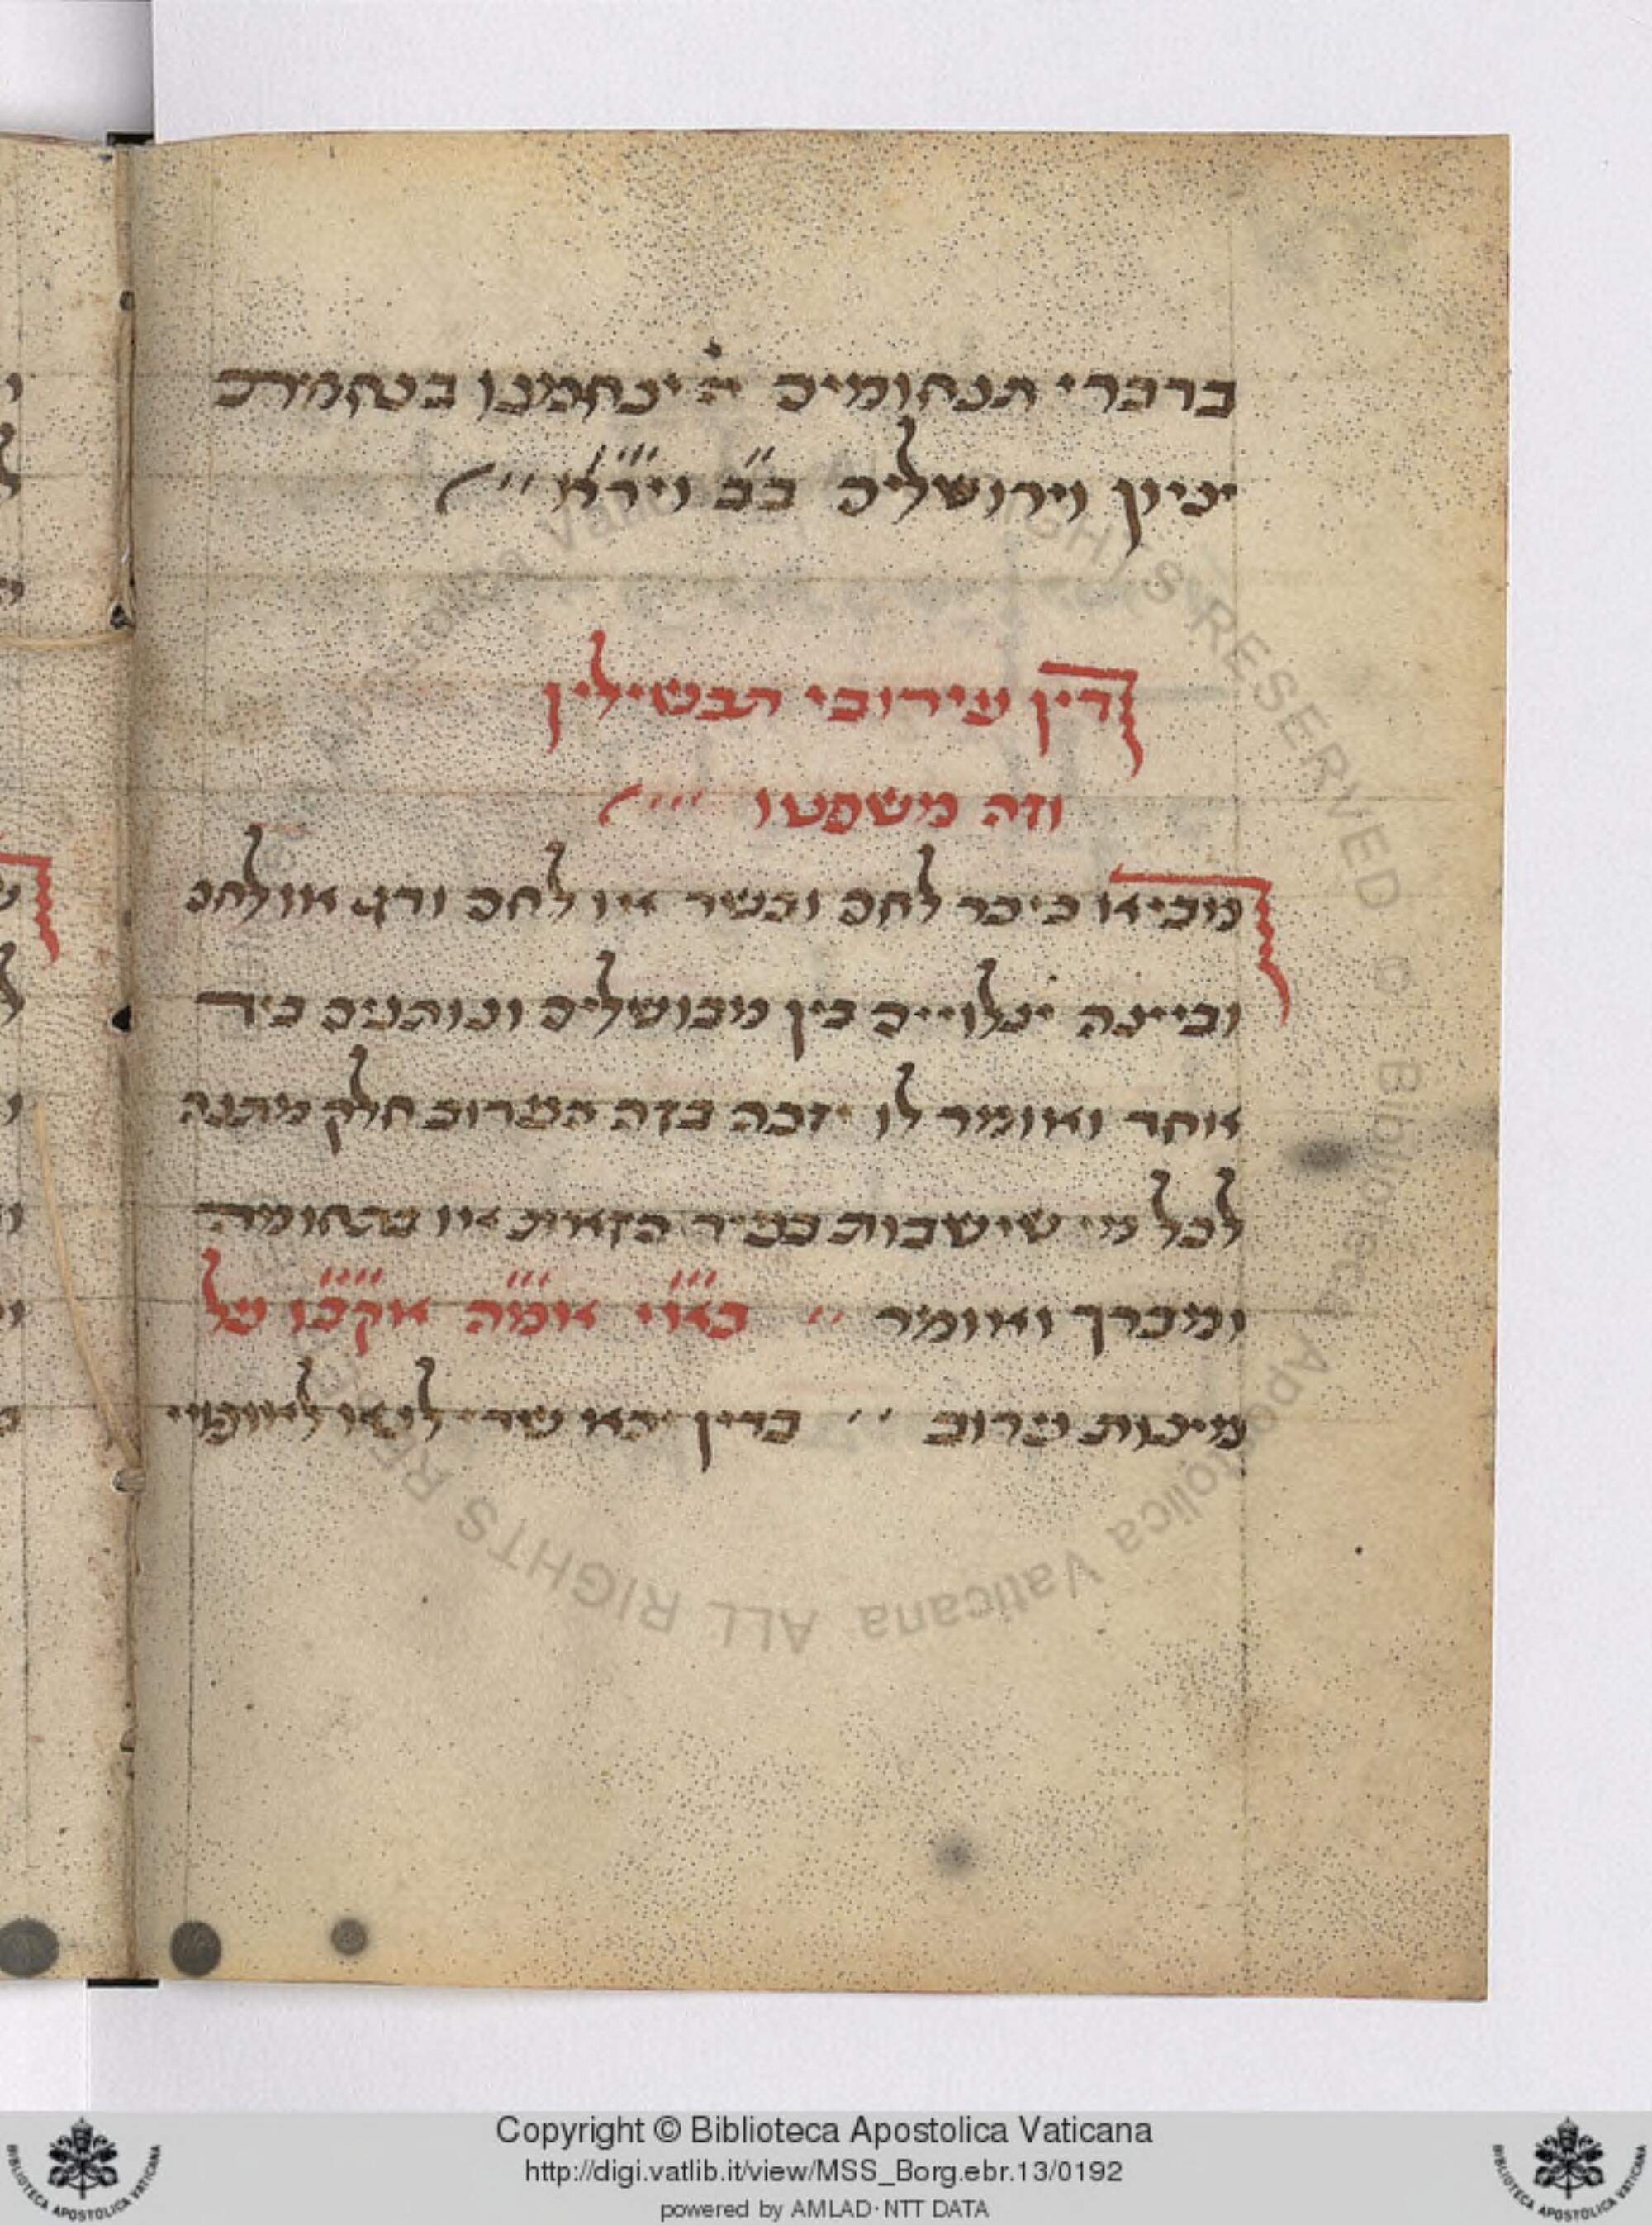 בדברי תנחומים ה׳ ינחמנו בנחמת
ציון וירושלים ב״ב
דין עירובי תבשילין
וזה משפטו
מביאו כיכר לחם ובשר או לחם ודג או לחם
וביצה צלויים בין מבושלים ונותנים ביד
אחד ואומר לו זכה בזה העירוב חלק מתנה
לכל מי שישבות בעיר הזאת או בתחומה
ומברך ואומר באו״י אמ״ה אקב״ו על
מצות עירוב בדין יהא שרי לנא לאופויי
Copyright © Biblioteca Apostolica Vaticana
http://digi.vatlib.it/view/MSS_Borg.ebr.13/0192
powered by AMLAD·NTT DATA